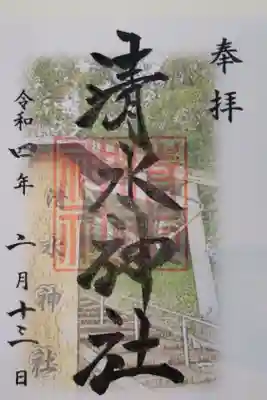 奉拝
清水神社
令和四年 二月十三日
清水神社